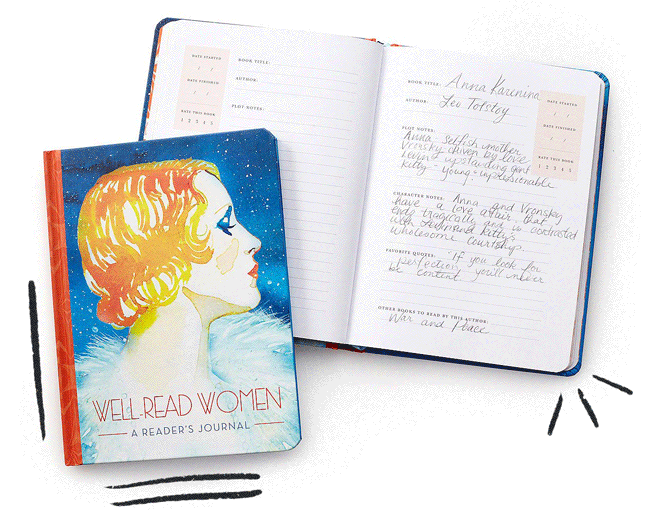 BOOK TITLE:
AUTHOR:
PLOT NOTES:
DATE STARTED
/ /
DATE FINISHED
/ /
RATE THIS BOOK
1 2 3 4 5
BOOK TITLE: Anna Karenina
AUTHOR: Leo Tolstoy
DATE STARTED
/ /
DATE FINISHED
/ /
RATE THIS BOOK
1 2 3 4 5
PLOT NOTES:
Anna, selfish mother
Vronsky driven by love
Levin upstanding gent
Kitty - young - impressionable
CHARACTER NOTES: Anna and Vronsky
have a love affair that
ends tragically and is contrasted
with Levin and Kitty's
wholesome courtship.
FAVORITE QUOTES: "If you look for
perfection, you'll never
be content."
OTHER BOOKS TO READ BY THIS AUTHOR:
War and Peace
WELL-READ WOMEN
A READER'S JOURNAL